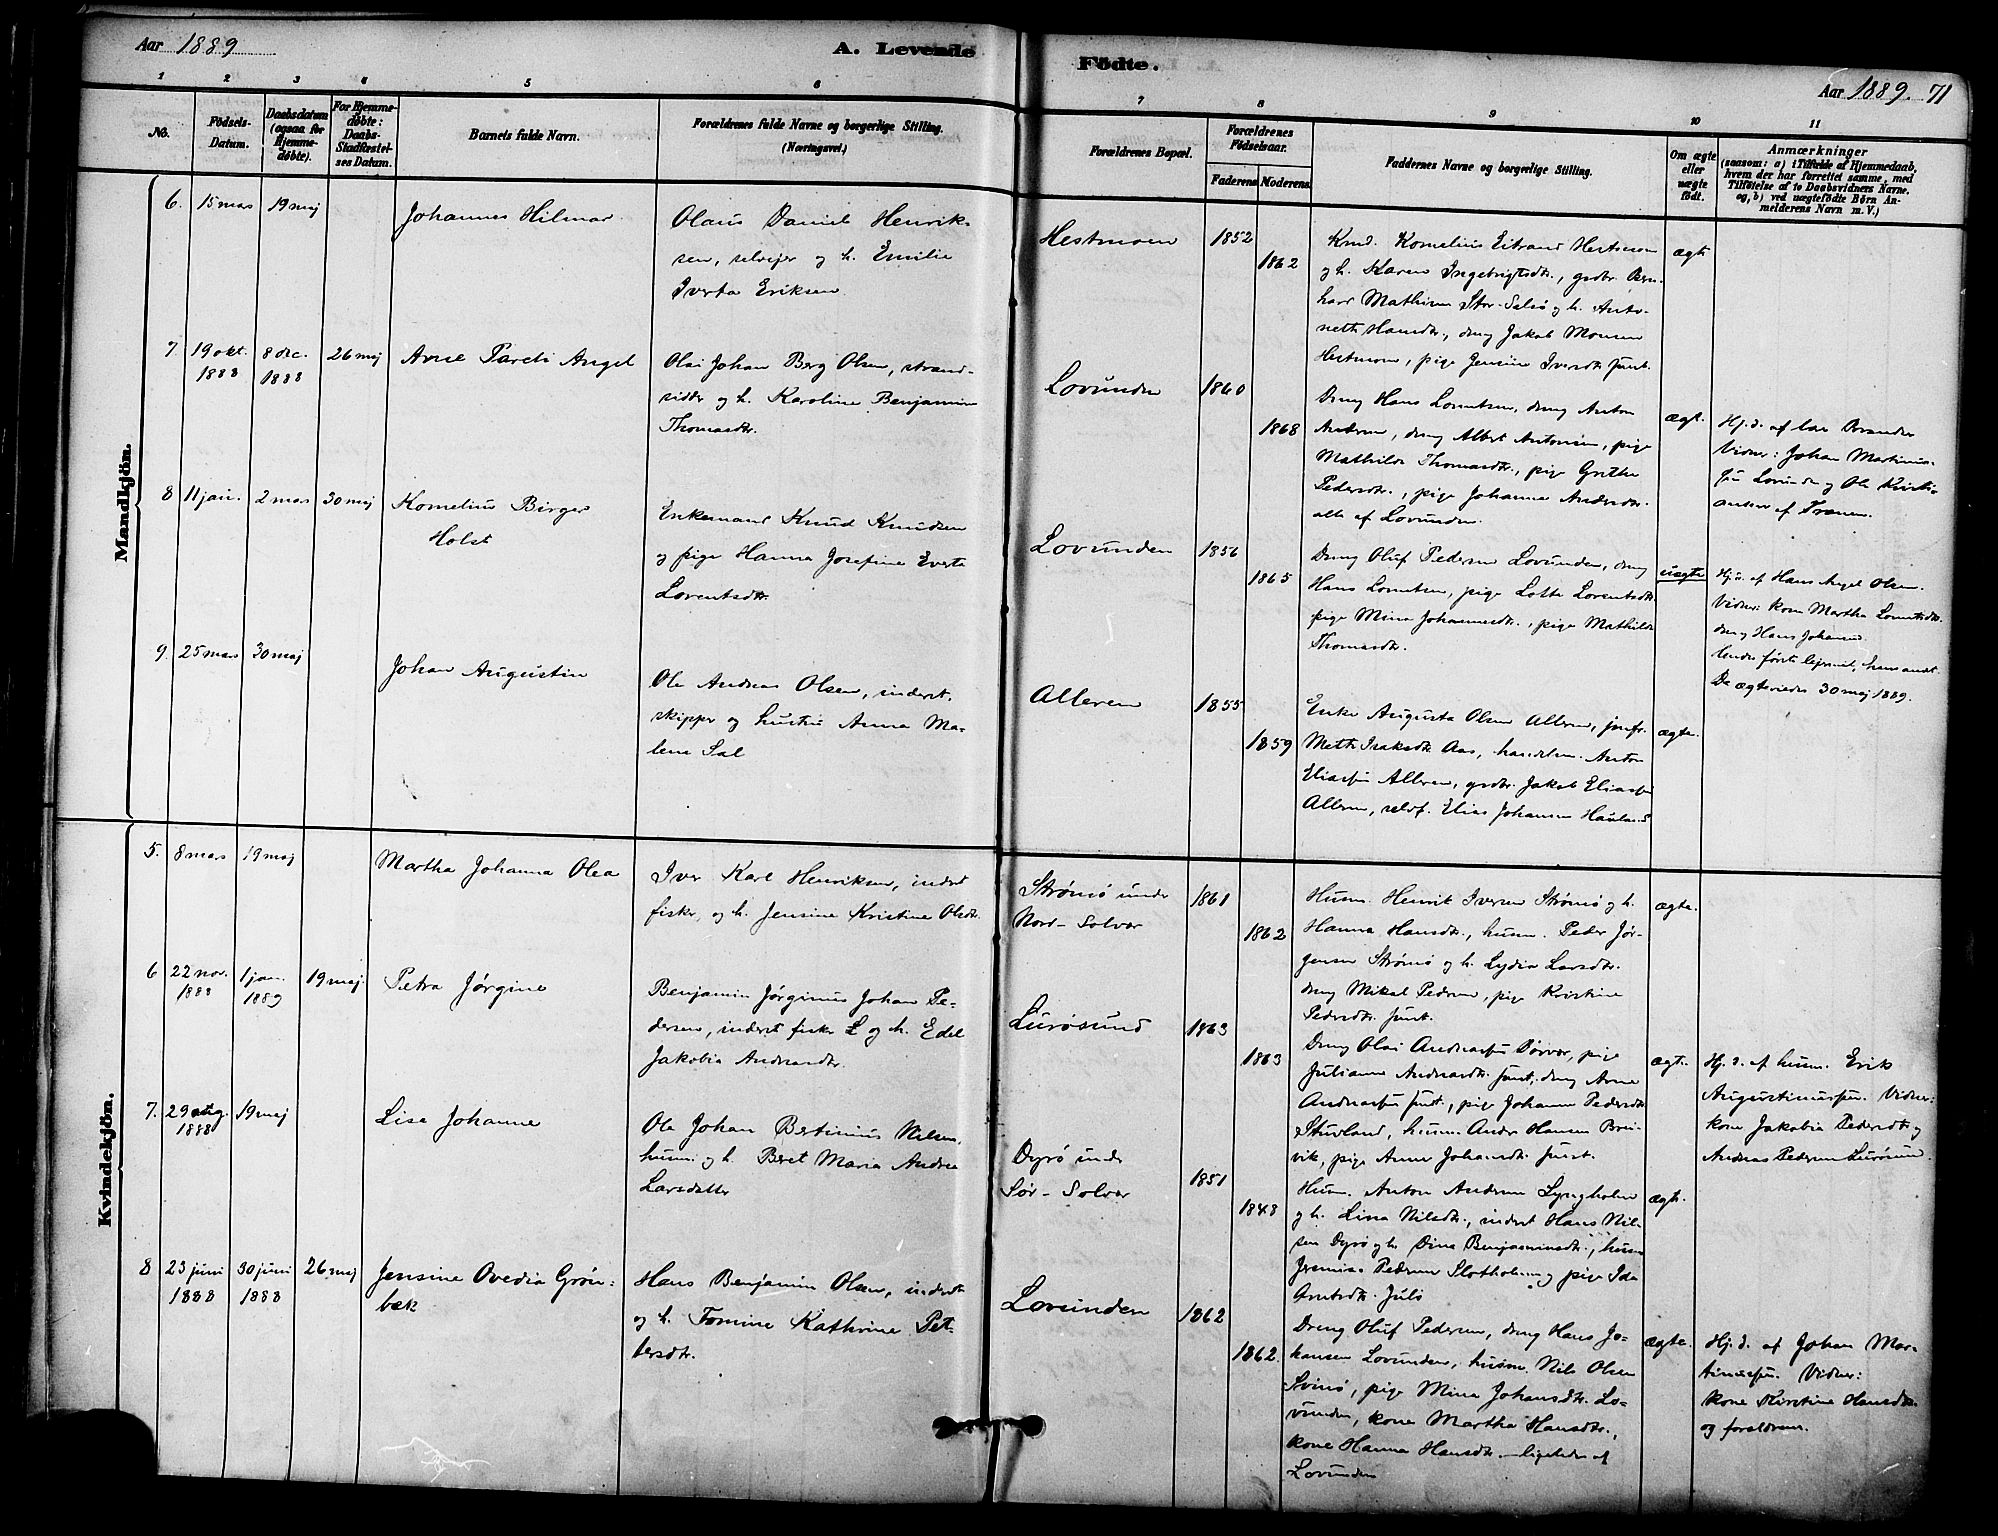 Aar 1889
A. Levende
Fødte.
Aar 1889. 71
1 2 3 4 5 6 7 8 9 10 11
No.
Fødsels-
Datum.
Daabsdatum
(ogsaa for
Hjemme-
døbte).
For Hjemme-
døbte:
Daabs-
Stadfæstel-
ses Datum.
Barnets fulde Navn.
Forældrenes fulde Navne og borgerlige Stilling.
(Næringsvei.)
Forældrenes Bopæl.
Forældrenes
Fødselsaar.
Faderens Moderens
Faddernes Navne og borgerlige Stilling.
Om ægte
eller
uægte
født.
Anmærkninger
(saasom: a) i Tilfælde af Hjemmedaab,
hvem der har forrettet samme, med
Tilføielse af to Daabsvidners Navne,
og, b) ved uægtefødte Børn An-
melderens Navn m. V.)
Mandkjøn.
6. 15 mars 19 maj
Johannes Hilmar
Olaus Daniel Henrik-
sen, selvejer og h. Emilie
Iverta Eriksen
Hestmoen 1852
1862
Kmd. Kornelius Eitrand Hestmoen
og h. Karen Ingebrigtsdtr., grdbr. Bern-
hard Mathisen Stor-Selsø og h. Anto-
nette Hansdtr., dreng Jakob Monsen
Hestmoen, pige Jensine Iversdtr. smst.
ægte
7 19 okt. 1888 8 dec. 1888 26 maj
Arne Pareli Angel
Olai Johan Berg Olsen, strand-
sidder og h. Karoline Benjamine
Thomasdtr.
Lovunden 1860
1868
Dreng Hans Lorentsen, dreng Anton
Andersen, dreng Albert Antonsen, pige
Mathilde Thomasdtr., pige Grethe
Pedersdtr., pige Johanna Andersdtr.
alle af Lovunden.
ægte.
Hj. d. af
Vidner: Johan Martinus-
sen Lovunden og Ole Kristi-
ansen af Trænen.
8 11 jan. 2 mars 30 maj
Kornelius Birger
Holst
Enkemand Knud Knudsen
og pige Hanna Josefine Everta
Lorentsdtr.
Lovunden 1856
1865
Dreng Oluf Pedersen Lovunden, dreng
Hans Lorentsen, pige Lotte Lorentsdtr.
pige Mina Johannesdtr., pige Mathilde
Thomasdtr.
uægte
Hj. d. af Hans Angel Olsen.
Vidner: kone Martha Lorentsdtr.
dreng Hans Johansen.
hendes første lejermål, hans andet.
De ægteviedes 30 maj 1889.
9. 25 mars 30 maj
Johan Augustin
Ole Andreas Olsen, inderst,
skipper og hustru Anna Ma-
lena Sal
Alleren 1855
1859
Enke Augusta Olsen Alleren, jomfr.
Mette Isaksdtr. Aas, handelsm. Anton
Eliassen Alleren, grdbr. Jakob Eliassen
Alleren, selvf. Elias Johansen
ægte.
Kvindekjøn.
5. 8 mars 19 maj
Martha Johanna Olea
Iver Karl Henriksen, inderst
fisker, og h. Jensine Kristine Olsdtr.
Strømø under
Nord-Solvær
1861
1862
Husm. Henrik Iversen Strømø og h.
Hanna Hansdtr., husm. Peder Jør-
gensen Strømø og h. Lydia Larsdtr.
dreng Mikal Pedersen, pige Kristine
Pedersdtr. smst.
ægte.
6 22 nov. 1888 1 jan. 1889 19 maj.
Petra Jørgine
Benjamin Jørginus Johan Pe-
dersen, inderst fisker L og h. Edel
Jakobia Andreasdtr.
Lurøsund 1863
1863
Dreng Olai Andreassen Sørvær, pige
Julianne Andreasdtr. smst., dreng Arne
Andreassen smst., pige Johanna Pedersdtr.
Stuvland, husm. Anders Hansen Brei-
vik, pige Anne Johansdtr. smst.
ægte.
Hj. d. af husm. Erik
Augustinussen. Vidner:
kone Jakobia Pedersdtr. og
Andreas Pedersen Lurøsund.
7. 29 aug. 1888 19 maj
Lise Johanne
Ole Johan Bertinius Nilsen,
husm. og h. Beret Maria Andrea
Larsdatter
Dyrø under
Sør-Solvær
1851
1848
Husm. Anton Andersen Lyngholmen
og h. Lina Nilsdtr., inderst Hans Nil-
sen Dyrø og h. Dina Benjaminsdtr., husm
Jeremias Pedersen Slotholmen og pige Ida
Arntsdtr. Julö
ægte.
8 23 juni 1888 30 juni 1888 26 maj
Jensine Ovedia Grøn-
bæk
Hans Benjamin Olsen, inderst
og h. Tomine Kathrine Pet-
tersdtr.
Lovunden 1862
1862.
Dreng Oluf Pedersen, dreng Hans Jo-
hansen Lovunden, husm Nils Olsen
Svinø, pige Mina Johansdtr. Lo-
vunden, kone Martha Hansdtr.,
kone Hanna Hansdtr. - ligeledes af
Lovunden
ægte.
Hj. d. af Johan Mar-
tinussen. Vidner:
kone Kirstine Hansdtr.
og forældrene.